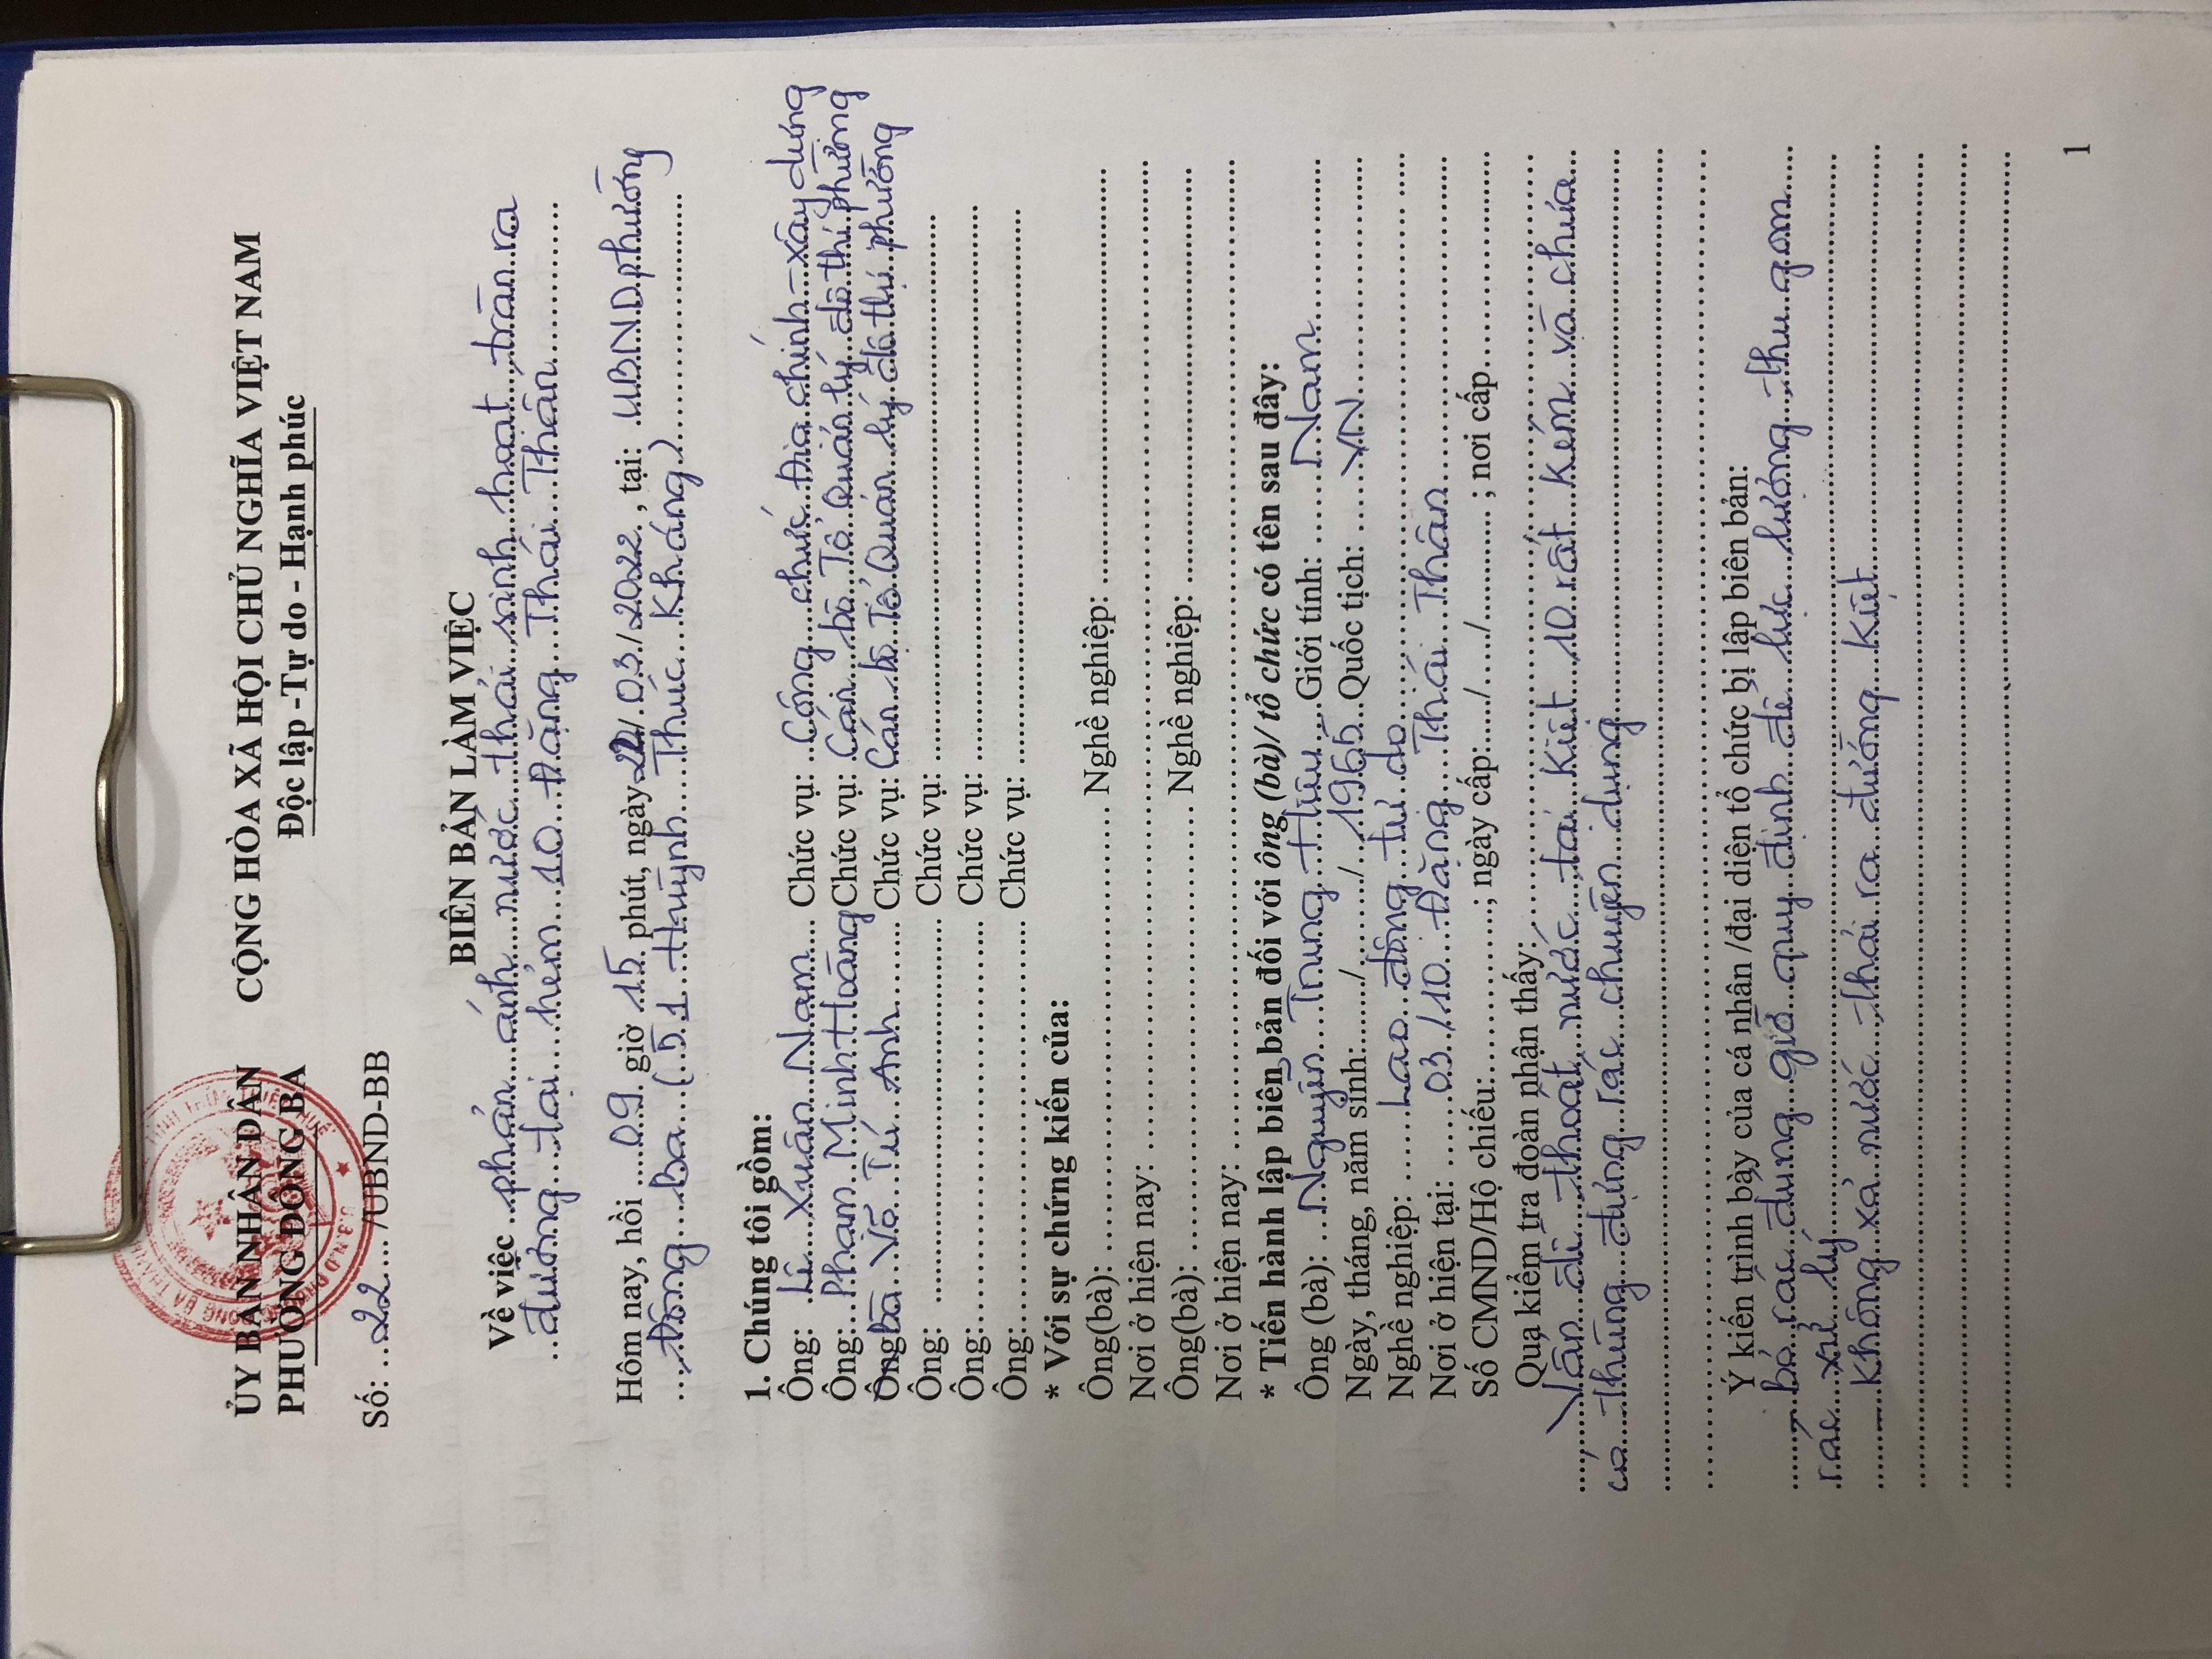 ỦY BAN NHÂN DÂN CỘNG HÒA XÃ HỘI CHỦ NGHĨA VIỆT NAM
PHƯỜNG ĐÔNG BA Độc lập -Tự do - Hạnh phúc
Số: ...22..../UBND-BB
BIÊN BẢN LÀM VIỆC
Về việc ..phản...ánh...nước...thải...sinh...hoạt...tràn..ra
...đường...tại...hẻm...10...Đặng...Thái...Thân...............
Hôm nay, hồi ....09.. giờ .15.. phút, ngày 22/.03./.2022. , tại: .UBND.phường
....Đông...Ba....(.51...Huỳnh...Thúc...Kháng.).....................
1. Chúng tôi gồm:
Ông: ..Lê...Xuân...Nam.... Chức vụ: ..Công...chức...Địa chính-xây dựng
Ông:...Phạm...Minh Hoàng Chức vụ: Cán...bộ...Tổ Quản lý đô thị phường
Bà...Võ...Tú...Anh......... Chức vụ: Cán..bộ..Tổ Quản lý đô thị phường
Ông: ............................................ Chức vụ: ......................................................
Ông:............................................ Chức vụ: ......................................................
Ông:............................................ Chức vụ: ......................................................
* Với sự chứng kiến của:
Ông(bà): ............................................ Nghề nghiệp: ............................................
Nơi ở hiện nay: ............................................................................................
Ông(bà): ............................................ Nghề nghiệp: ............................................
Nơi ở hiện nay: ............................................................................................
* Tiến hành lập biên bản đối với ông (bà)/ tổ chức có tên sau đây:
Ông (bà): ...Nguyễn...Trung...Hữu....Giới tính: .......Nam................
Ngày, tháng, năm sinh:......../......../..1965..Quốc tịch: .....VN........................
Nghề nghiệp: .......Lao...động...tự do..................................................
Nơi ở hiện tại: ......03./.10...Đặng...Thái...Thân...............................
Số CMND/Hộ chiếu:...............; ngày cấp:...../...../............ ; nơi cấp....................
Qua kiểm tra đoàn nhận thấy:............................................................
.....Vấn...đề...thoát...nước...tại..Kiệt...10..rất...kém...và...chưa...
có...thùng...đựng...rác...chuyên...dụng.............................................
............................................................................................
............................................................................................
Ý kiến trình bày của cá nhân /đại diện tổ chức bị lập biên bản:
......bỏ..rác...đúng...giờ..quy..định..để..lực..lượng...thu..gom....
rác...xử..lý............................................................................
.........Không..xả..nước...thải..ra..đường...Kiệt............................
............................................................................................
............................................................................................
............................................................................................
1